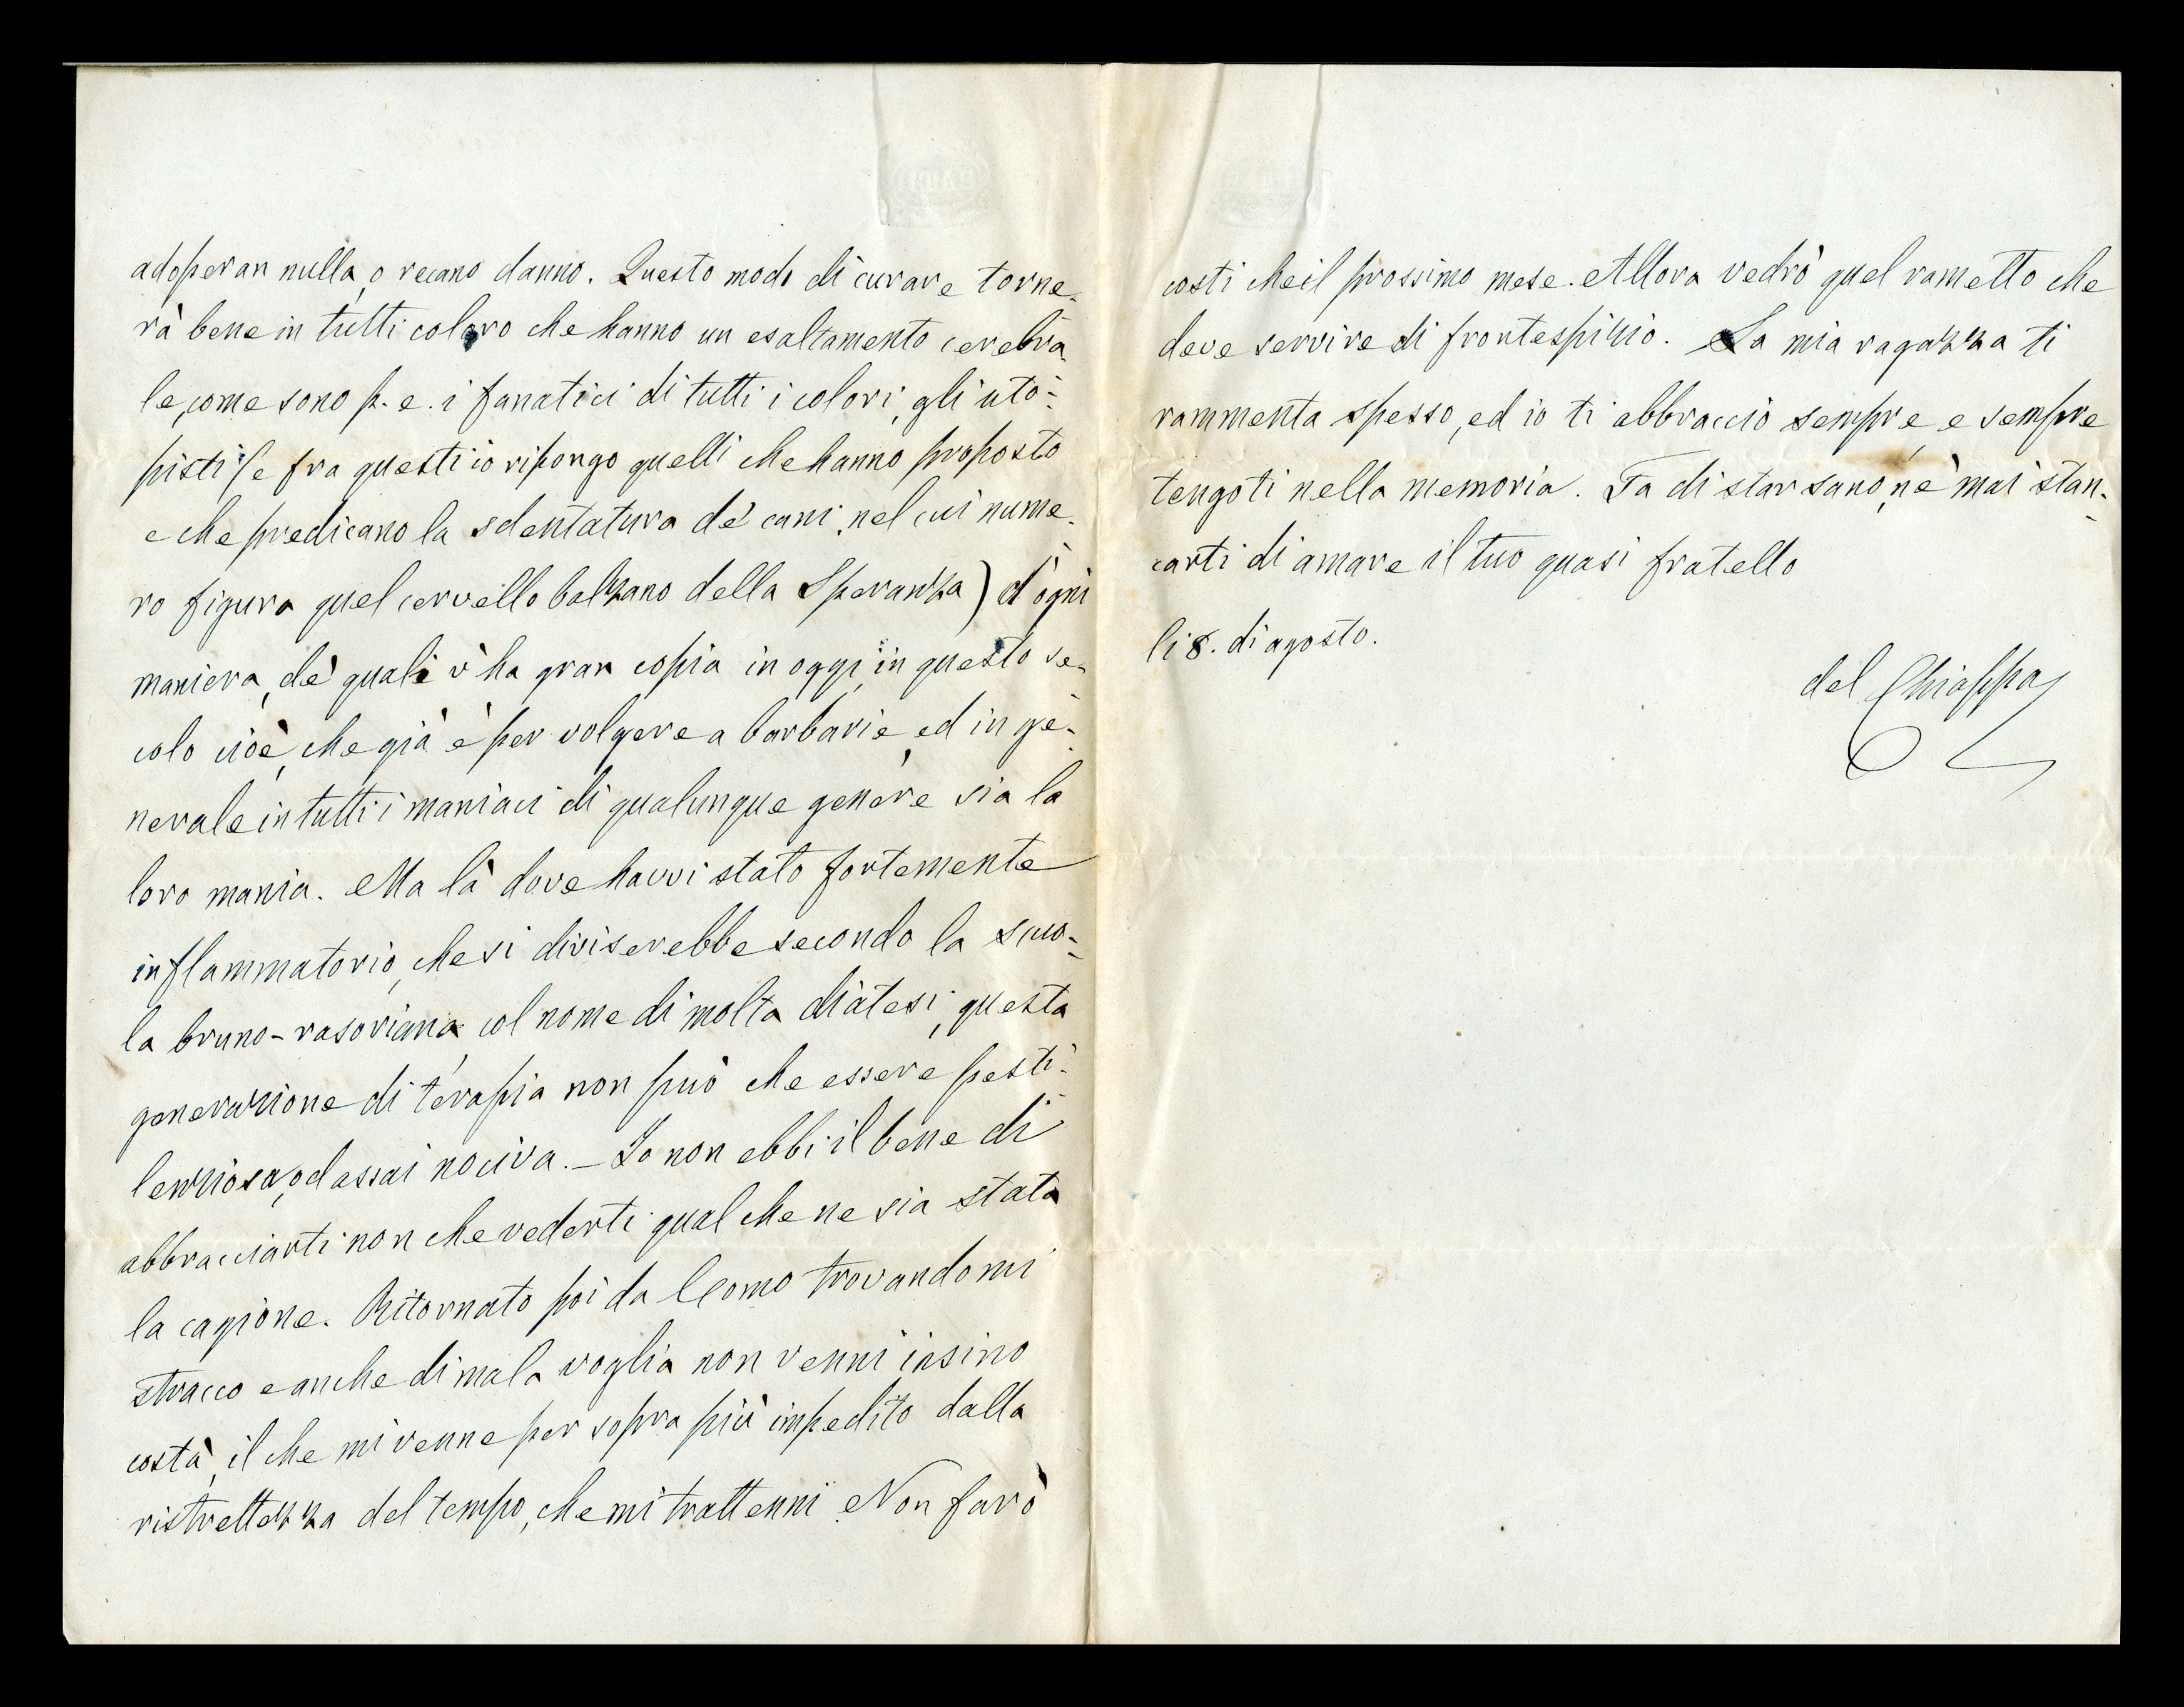 adoperan nulla, o recano danno. Questo modo di curare torne-
rà bene in tutti coloro che hanno un esaltamento cerebra-
le, come sono p. e. i fanatici di tutti i colori, gli uto-
pisti (e fra questi io ripongo quelli che hanno proposto
e che predicano la sdentatura de' cani, nel cui nume-
ro figura quel cervello balzano della Speranza) d'ogni
maniera, de' quali v'ha gran copia in oggi, in questo se-
colo cioè, che già è per volgere a barbarie, ed in ge-
nerale in tutti i maniaci di qualunque genere sia la
loro mania. Ma là dove havvi stato fortemente
inflammatorio, che si diviserebbe secondo la scuo-
la bruno-rasoriana col nome di molta diatesi, questa
generazione di terapia non può che essere pesti-
lenziosa, od assai nociva. – Io non ebbi il bene di
abbracciarti non che vederti qual che ne sia stata
la cagione. Ritornato poi da Como trovandomi
stracco e anche di mala voglia non venni insino
costà, il che mi venne per sopra più impedito dalla
ristrettezza del tempo, che mi trattenni. Non farò
costi che il prossimo mese. Allora vedrò quel rametto che
deve servire di frontespizio. La mia ragazza ti
rammenta spesso, ed io ti abbraccio sempre, e sempre
tengoti nella memoria. Fa di star sano, nè mai stan-
carti di amare il tuo quasi fratello
li 8. di agosto.
del Chiappa